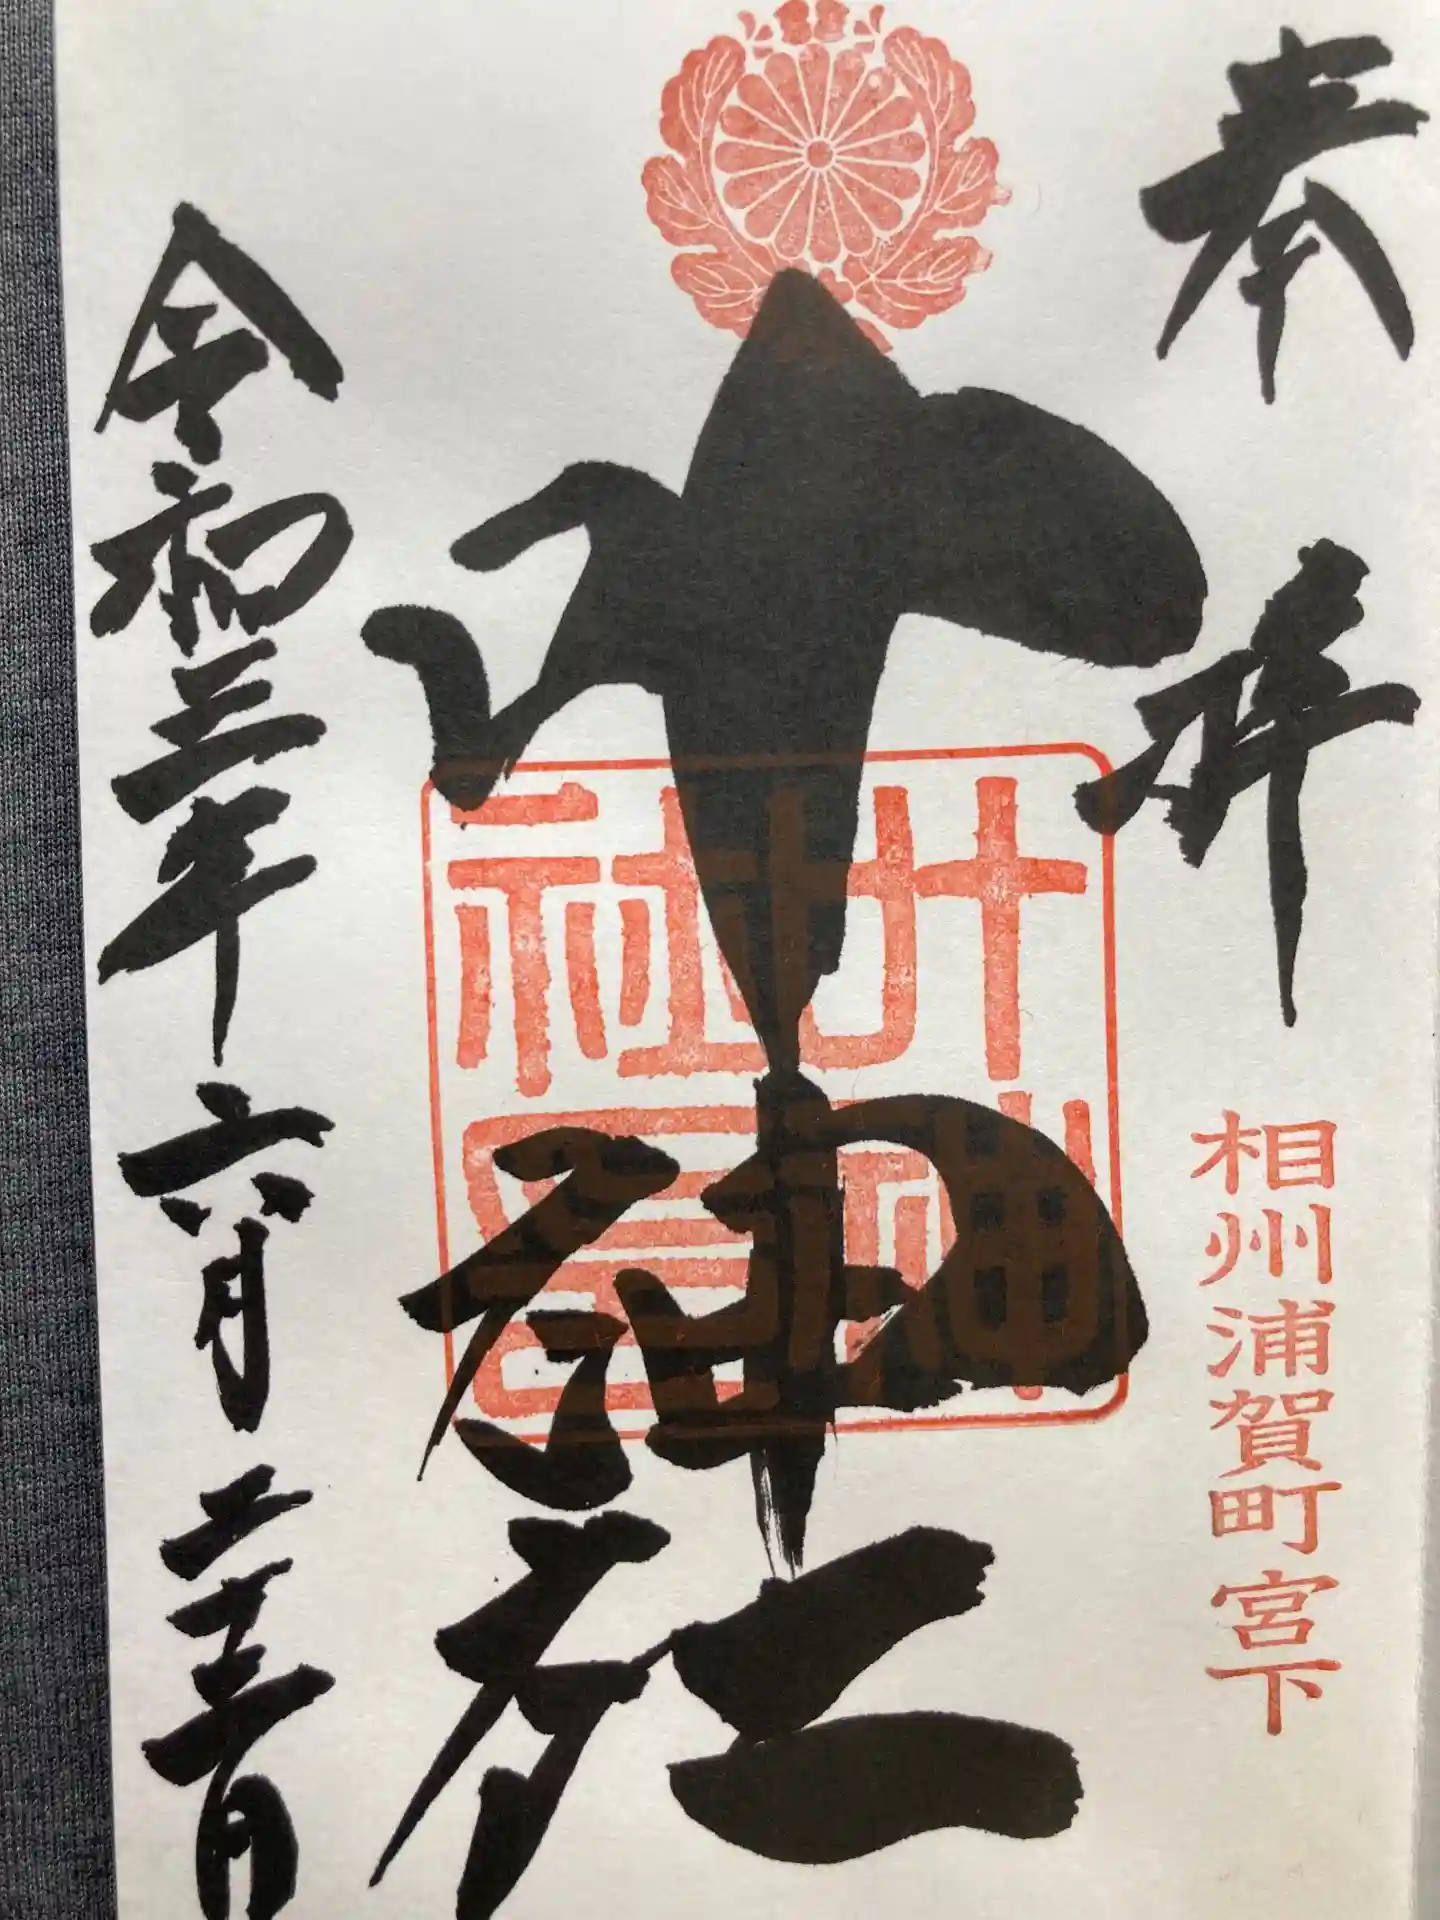 奉拝
相州浦賀町宮下
叶神社
叶神社印
令和三年六月二十三日